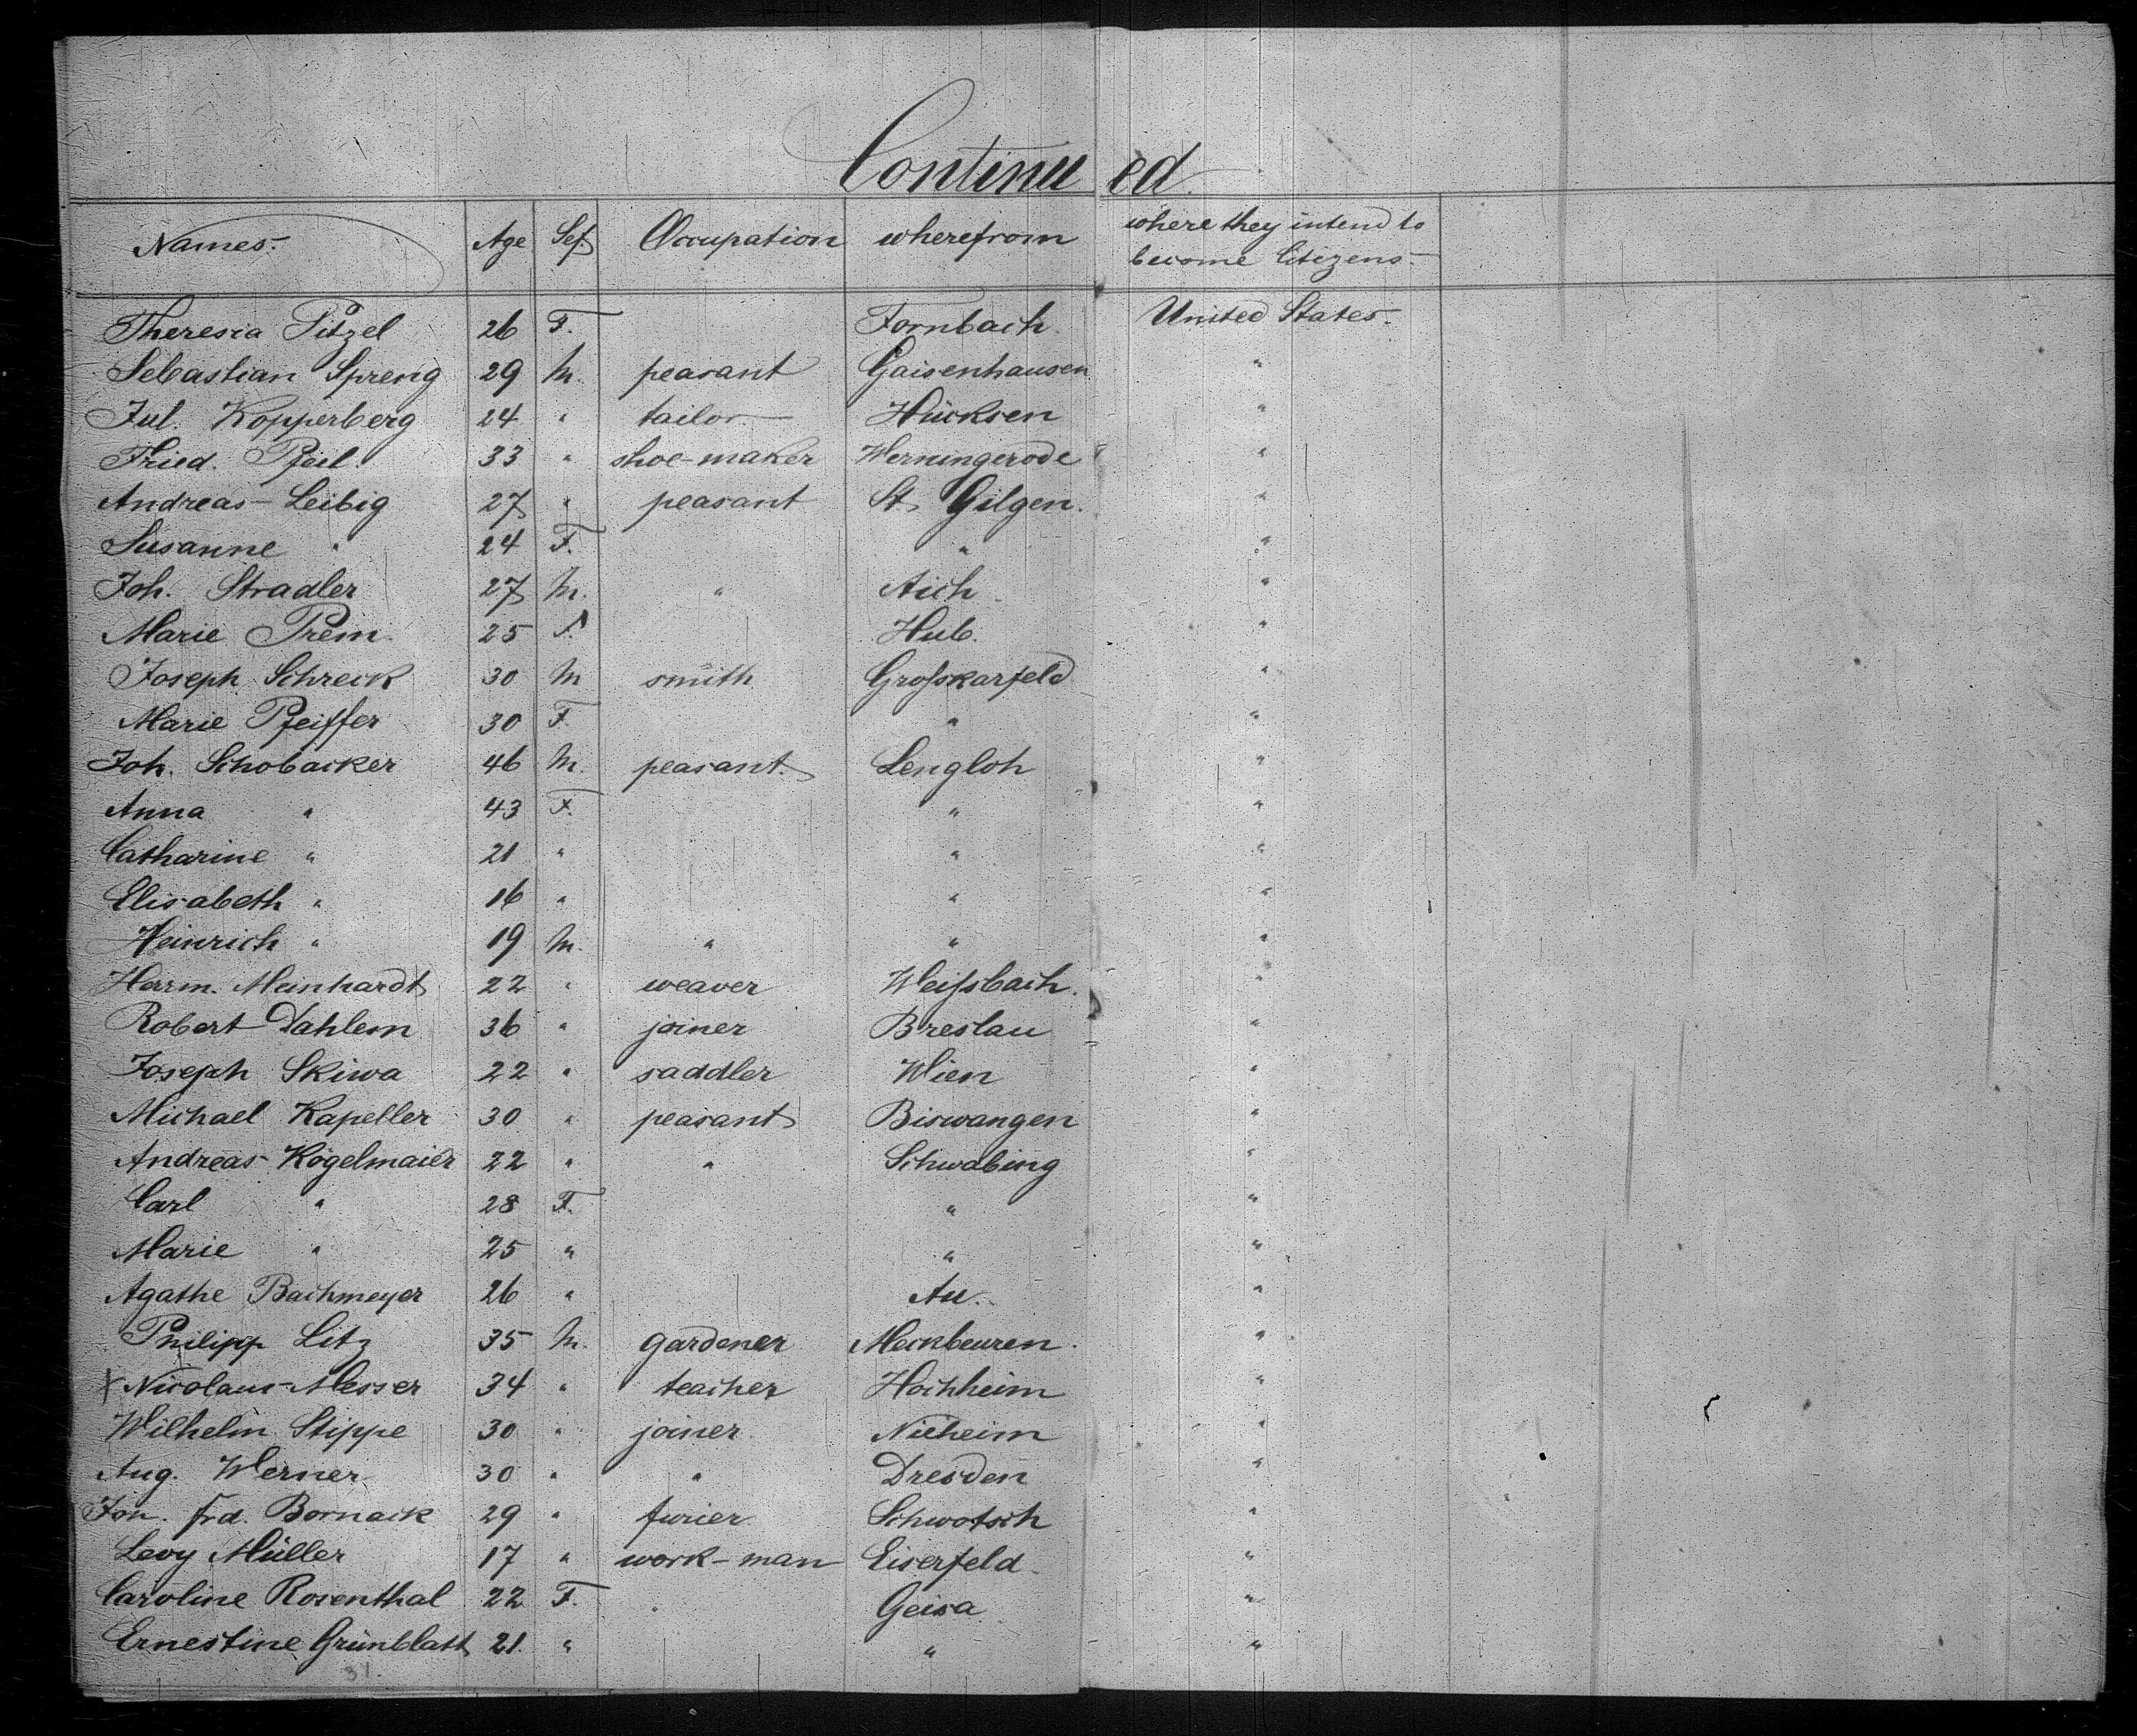 Continued
Names. Age Sex Occupation wherefrom where they intend to
become Citizens.
Theresia Pitzel 26 F. Fornbach. United States.
Sebastian Spreng 29 M. peasant Gaisenhausen "
Jul. Kopperberg 24 " tailor Hücksen "
Fried. Pfeil. 33 " shoe-maker Werningerode "
Andreas Leibig 27 " peasant St. Gilgen. "
Susanne " 24 F. " "
Joh. Stradler 27 M. " Aich "
Marie Prem. 25 F. Hub. "
Joseph Schreck 30 M smith Großkarfeld "
Marie Pfeiffer 30 F " "
Joh. Schobacker 46 M. peasant. Lengloh "
Anna " 43 F. " "
Catharine " 21 " " "
Elisabeth " 16 " " "
Heinrich " 19 M. " " "
Herrm. Meinhardt 22 " weaver Weißbach. "
Robert Dahlem 36 " joiner Breslau "
Joseph Skiwa 22 " saddler Wien "
Michael Kapeller 30 " peasant Biswangen "
Andreas Kögelmaier 22 " " Schwabing "
Carl " 28 F. " "
Marie " 25 " " "
Agathe Bachmeyer 26 " Au. "
Philipp Litz 35 M. gardener Meckbeuren. "
x Nicolaus Messer 34 " teacher Hochheim "
Wilhelm Stippe 30 " joiner Nieheim "
Aug. Werner 30 " " Dresden "
Joh. Frd. Bornack 29 " furier Schwotsch "
Levy Müller 17 " work-man Eiserfeld "
Caroline Rosenthal 22 F. " Geisa "
Ernestine Grünblatt 21. " " "
31.